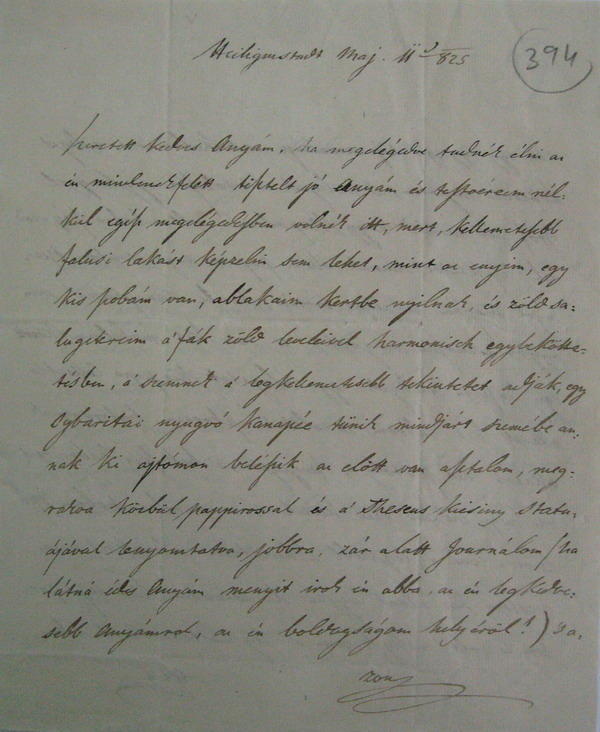 Heiligenstadt Maj. 11d 825
394
Szeretett kedves Anyám, ha megelégedve tudnék élni az
én mindenekfelett tisztelt jó Anyám és testvéreim nél-
kül egész megelégedésben volnék itt, mert, kellemetesebb
falusi lakást képzelni sem lehet, mint az enyim, egy
kis szobám van, ablakaim kertbe nyilnak, és zöld sa-
lugátereim á fák zöld leveleivel harmonisch egybeköttе-
tésben, á szemnek á legkellemetesebb tekintetet adják, egy
Sybaritai nyugvó kanapée tünik mindjárt szemébe an-
nak ki ajtómon belépik az előtt van asztalom, meg-
rakva körbül pappirossal és á Theseus kicsiny statu-
ájával lenyomtatva, jobbra, zár alatt Journálom (ha
látná édes Anyám menyit irok én abba, az én legkedve-
sebb Anyámrol, az én boldogságom helyéről!) 's a-
zon